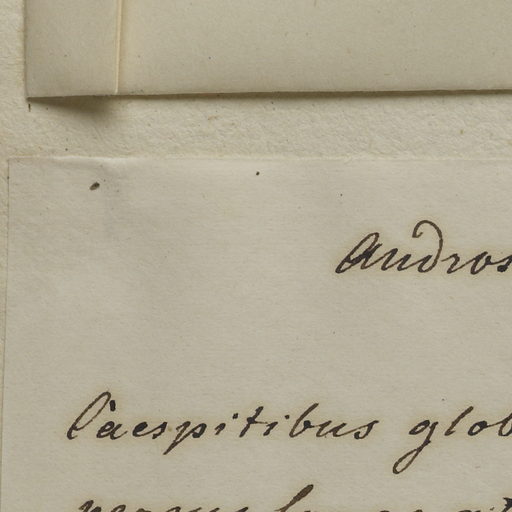 Andros
Caespitibus glob